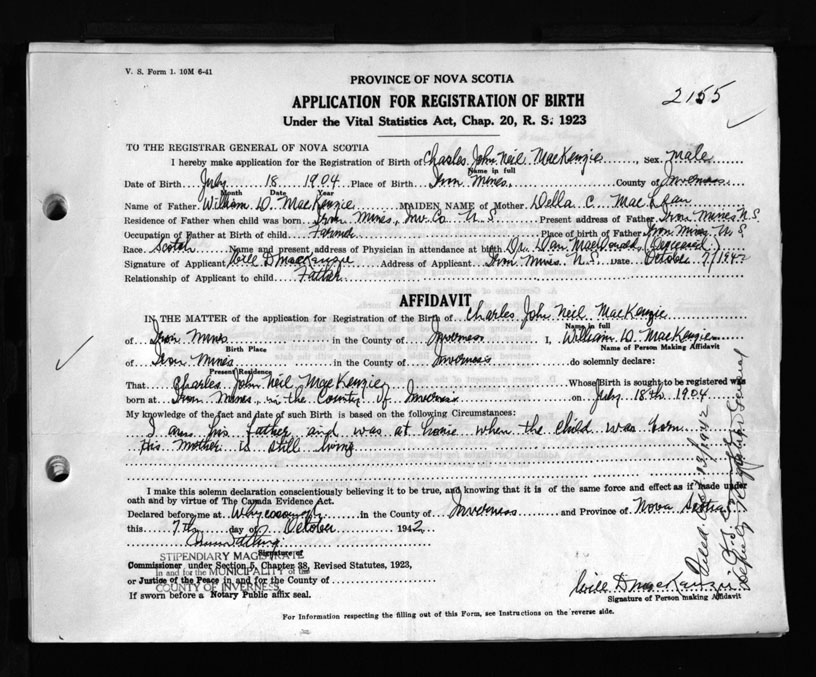 V. S. Form 1. 10M 6-41
PROVINCE OF NOVA SCOTIA
2155
APPLICATION FOR REGISTRATION OF BIRTH
Under the Vital Statistics Act, Chap. 20, R. S. 1923
TO THE REGISTRAR GENERAL OF NOVA SCOTIA
I hereby make application for the Registration of Birth of Charles John Neil MacKenzie, Sex male
Name in full
Date of Birth July 18 1904 Place of Birth Iron Mines, County of Inverness
Month Date Year
Name of Father William D. MacKenzie MAIDEN NAME of Mother Della C. MacLean
Residence of Father when child was born Iron Mines, Inv. Co. N.S. Present address of Father Iron Mines N.S.
Occupation of Father at Birth of child Farmer Place of birth of Father Iron Mines N.S
Race Scotch Name and present address of Physician in attendance at birth Dr. Dan MacDonald, (Deceased)
Signature of Applicant Will D MacKenzie Address of Applicant Iron Mines N.S. Date October 7/1942
Relationship of Applicant to child Father
AFFIDAVIT
IN THE MATTER of the application for Registration of the Birth of Charles John Neil MacKenzie
Name in full
of Iron Mines in the County of Inverness I, William D. MacKenzie
Birth Place Name of Person Making Affidavit
of Iron Mines in the County of Inverness do solemnly declare:
Present Residence
That Charles John Neil MacKenzie Whose Birth is sought to be registered was
born at Iron Mines, in the County of Inverness on July 18th 1904
My knowledge of the fact and date of such Birth is based on the following Circumstances:
I am his father and was at home when the child was born
His mother is still living
I make this solemn declaration conscientiously believing it to be true, and knowing that it is of the same force and effect as if made under
oath and by virtue of The Canada Evidence Act.
Declared before me at Whycocomagh in the County of Inverness and Province of Nova Scotia
this 7th day of October 1942
Signature of
STIPENDIARY MAGISTRATE
Commissioner under Section 5, Chapter 38, Revised Statutes, 1923,
in and for the MUNICIPALITY of the
or Justice of the Peace in and for the County of
COUNTY OF INVERNESS
If sworn before a Notary Public affix seal.
Will D MacKenzie
Signature of Person making Affidavit
For Information respecting the filling out of this Form, see Instructions on the reverse side.
13/1942
Deputy Registrar General